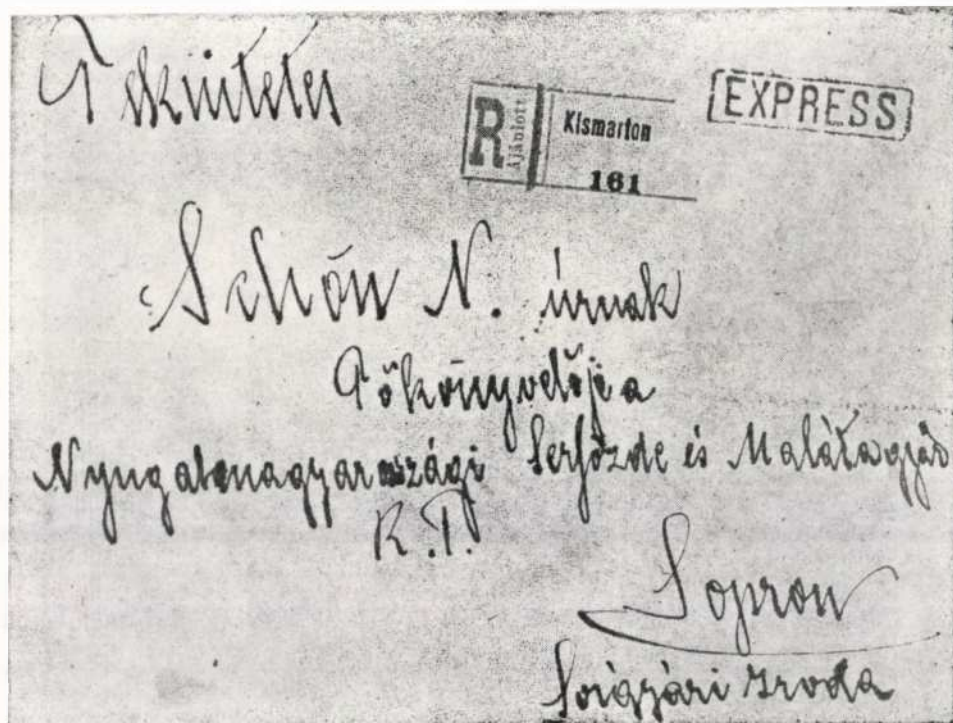 Tekintetes
R Ajánlott Kismarton 161
EXPRESS
Schön N. úrnak
Főkönyvelője a
Nyugatmagyarországi Serfőzde és Malátagyár
R.T.
Sopron
Sörgyári Iroda